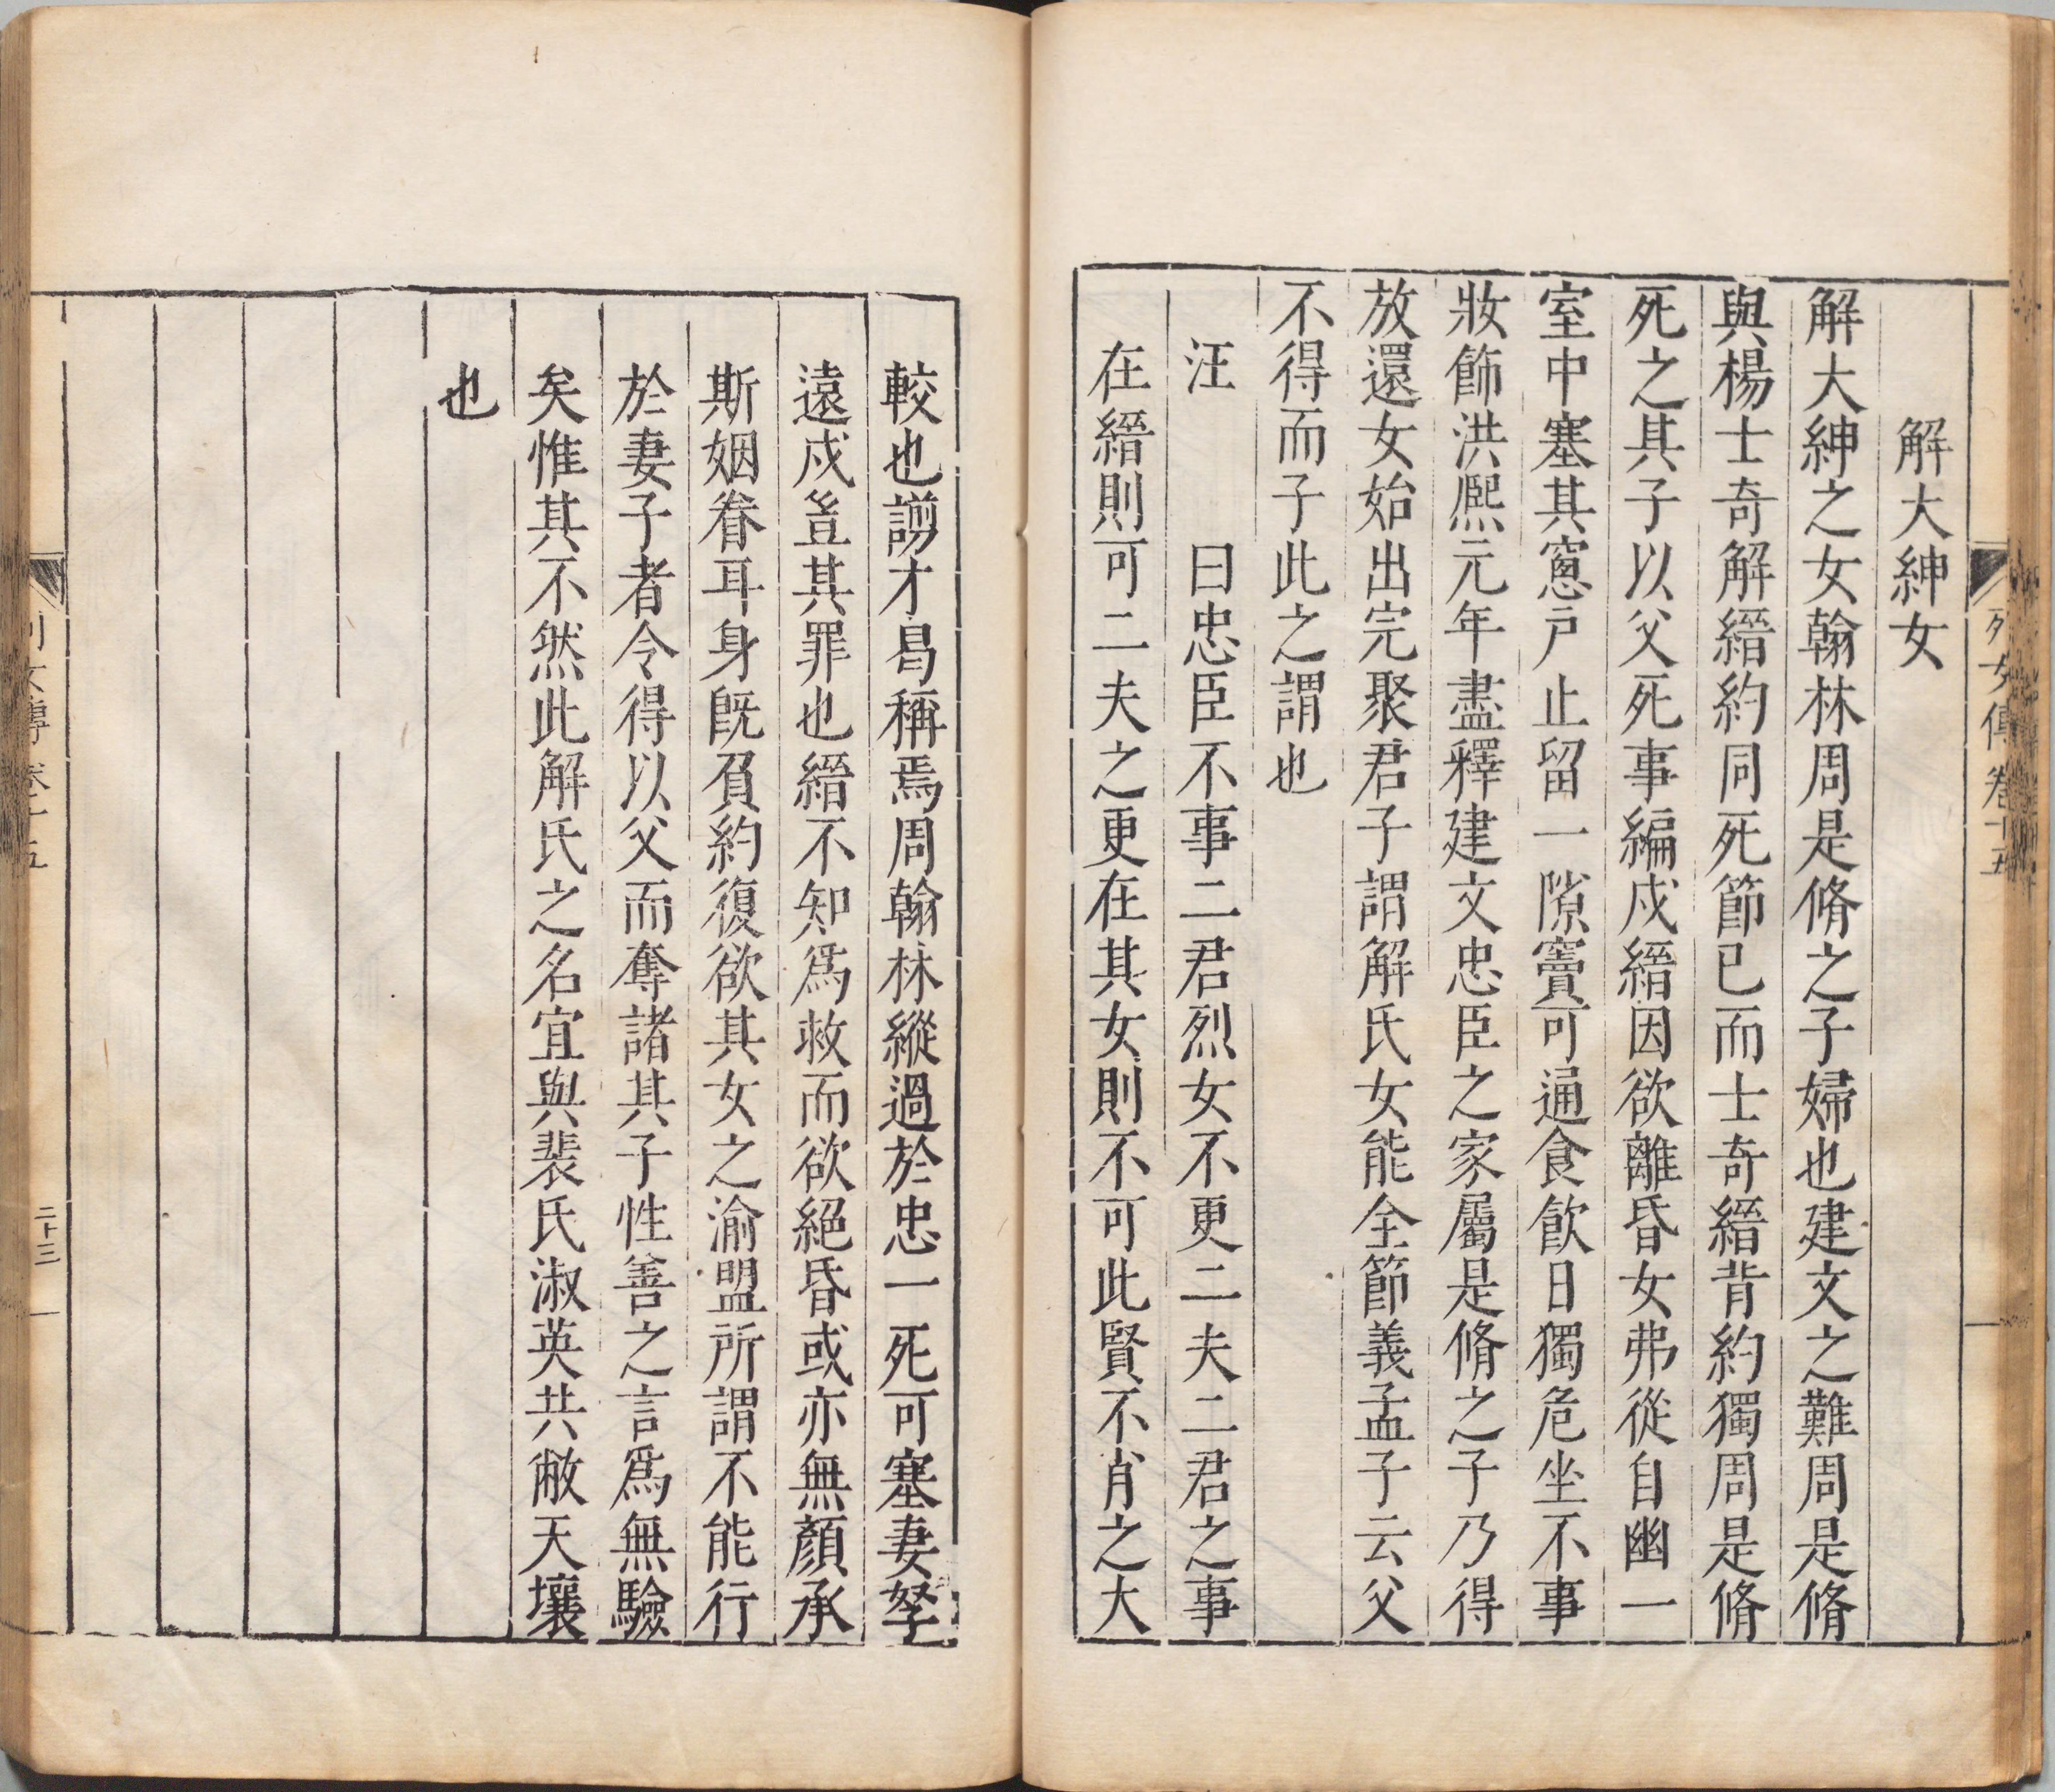 解大紳女
解大紳之女翰林周是脩之子婦也建文之難周是脩
與楊士奇解縉約同死節已而士奇縉背約獨周是脩
死之其子以父死事編戍縉因欲離昏女弗從自幽一
室中塞其窻戸止留一隙竇可通食飲日獨危坐不事
妝飾洪熈元年盡釋建文忠臣之家屬是脩之子乃得
放還女始出完聚君子謂解氏女能全節義孟子云父
不得而子此之謂也
汪 曰忠臣不事二君烈女不更二夫二君之事
在縉則可二夫之更在其女則不可此賢不肖之大
較也謭才曷稱焉周翰林縱過於忠一死可塞妻孥
遠戍豈其罪也縉不知爲救而欲絕昏或亦無顏承
斯姻眷耳身旣負約復欲其女之渝盟所謂不能行
於妻子者令得以父而奪諸其子性善之言爲無驗
矣惟其不然此解氏之名宜與裴氏淑英共敝天壤
也
列女傳卷十五
二十三